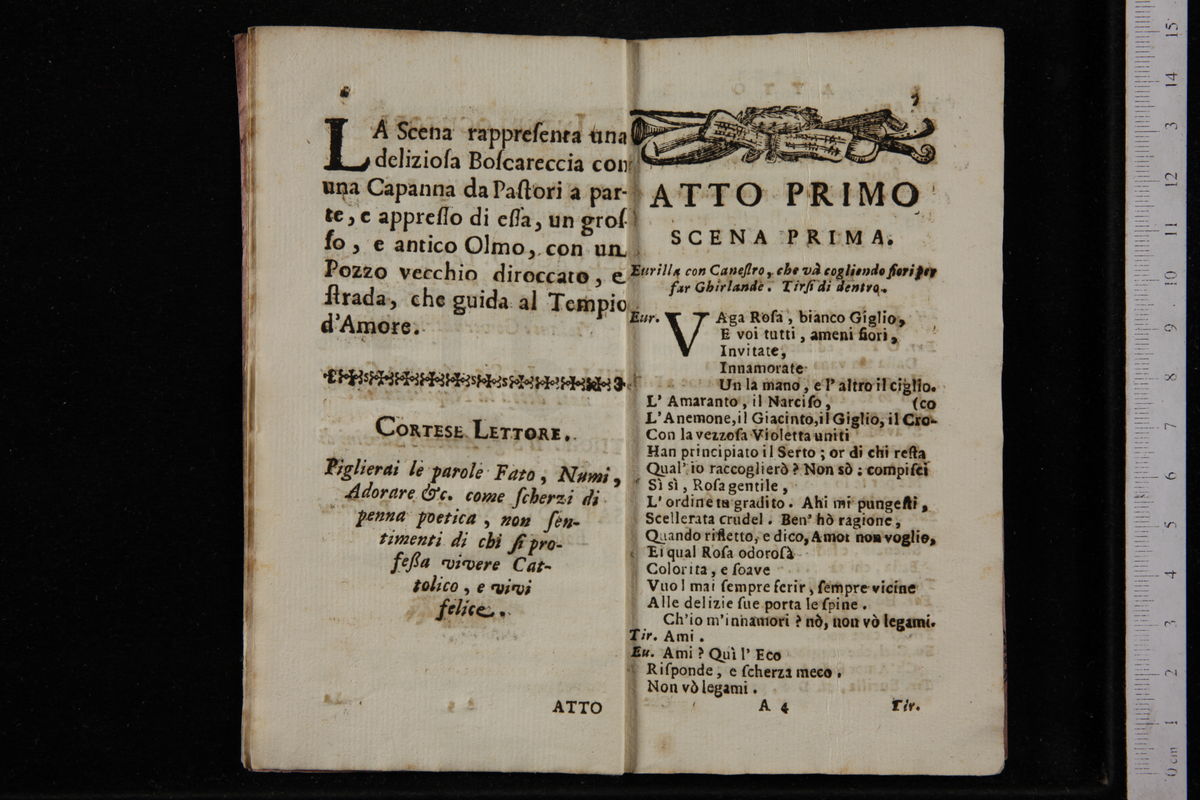 LA Scena rappreſenta una
delizioſa Boſcareccia con
una Capanna da Paſtori a par-
te, e appreſſo di eſſa, un groſ-
ſo, e antico Olmo, con un
Pozzo vecchio diroccato, e
ſtrada, che guida al Tempio
d'Amore.
CORTESE LETTORE.
Piglierai le parole Fato, Numi,
Adorare &c. come ſcherzi di
penna poetica, non ſen-
timenti di chi ſi pro-
feßa vivere Cat-
tolico, e vivi
felice.
ATTO
ATTO PRIMO
SCENA PRIMA.
Eurilla con Caneſtro, che và cogliendo fiori per
far Ghirlande. Tirſi di dentro.
Eur. VAga Roſa, bianco Giglio,
E voi tutti, ameni fiori,
Invitate,
Innamorate
Un la mano, e l' altro il ciglio.
L' Amaranto, il Narciſo, (co
L'Anemone, il Giacinto, il Giglio, il Cro-
Con la vezzoſa Violetta uniti
Han principiato il Serto; or di chi reſta
Qual' io raccoglierò? Non sò: compiſci
Sì sì, Roſa gentile,
L' ordine tu gradito. Ahi mi pungeſti,
Scellerata crudel. Ben' hò ragione,
Quando rifletto, e dico, Amor non voglio,
Ei qual Roſa odoroſa
Colorita, e ſoave
Vuol mai ſempre ferir, ſempre vicine
Alle delizie ſue porta le ſpine.
Ch'io m'innamori? nò, non vò legami.
Tir. Ami.
Eu. Ami? Quì l' Eco
Riſponde, e ſcherza meco.
Non vò legami.
A 4 Tir.
0 cm 1 2 3 4 5 6 7 8 9 10 11 12 13 14 15